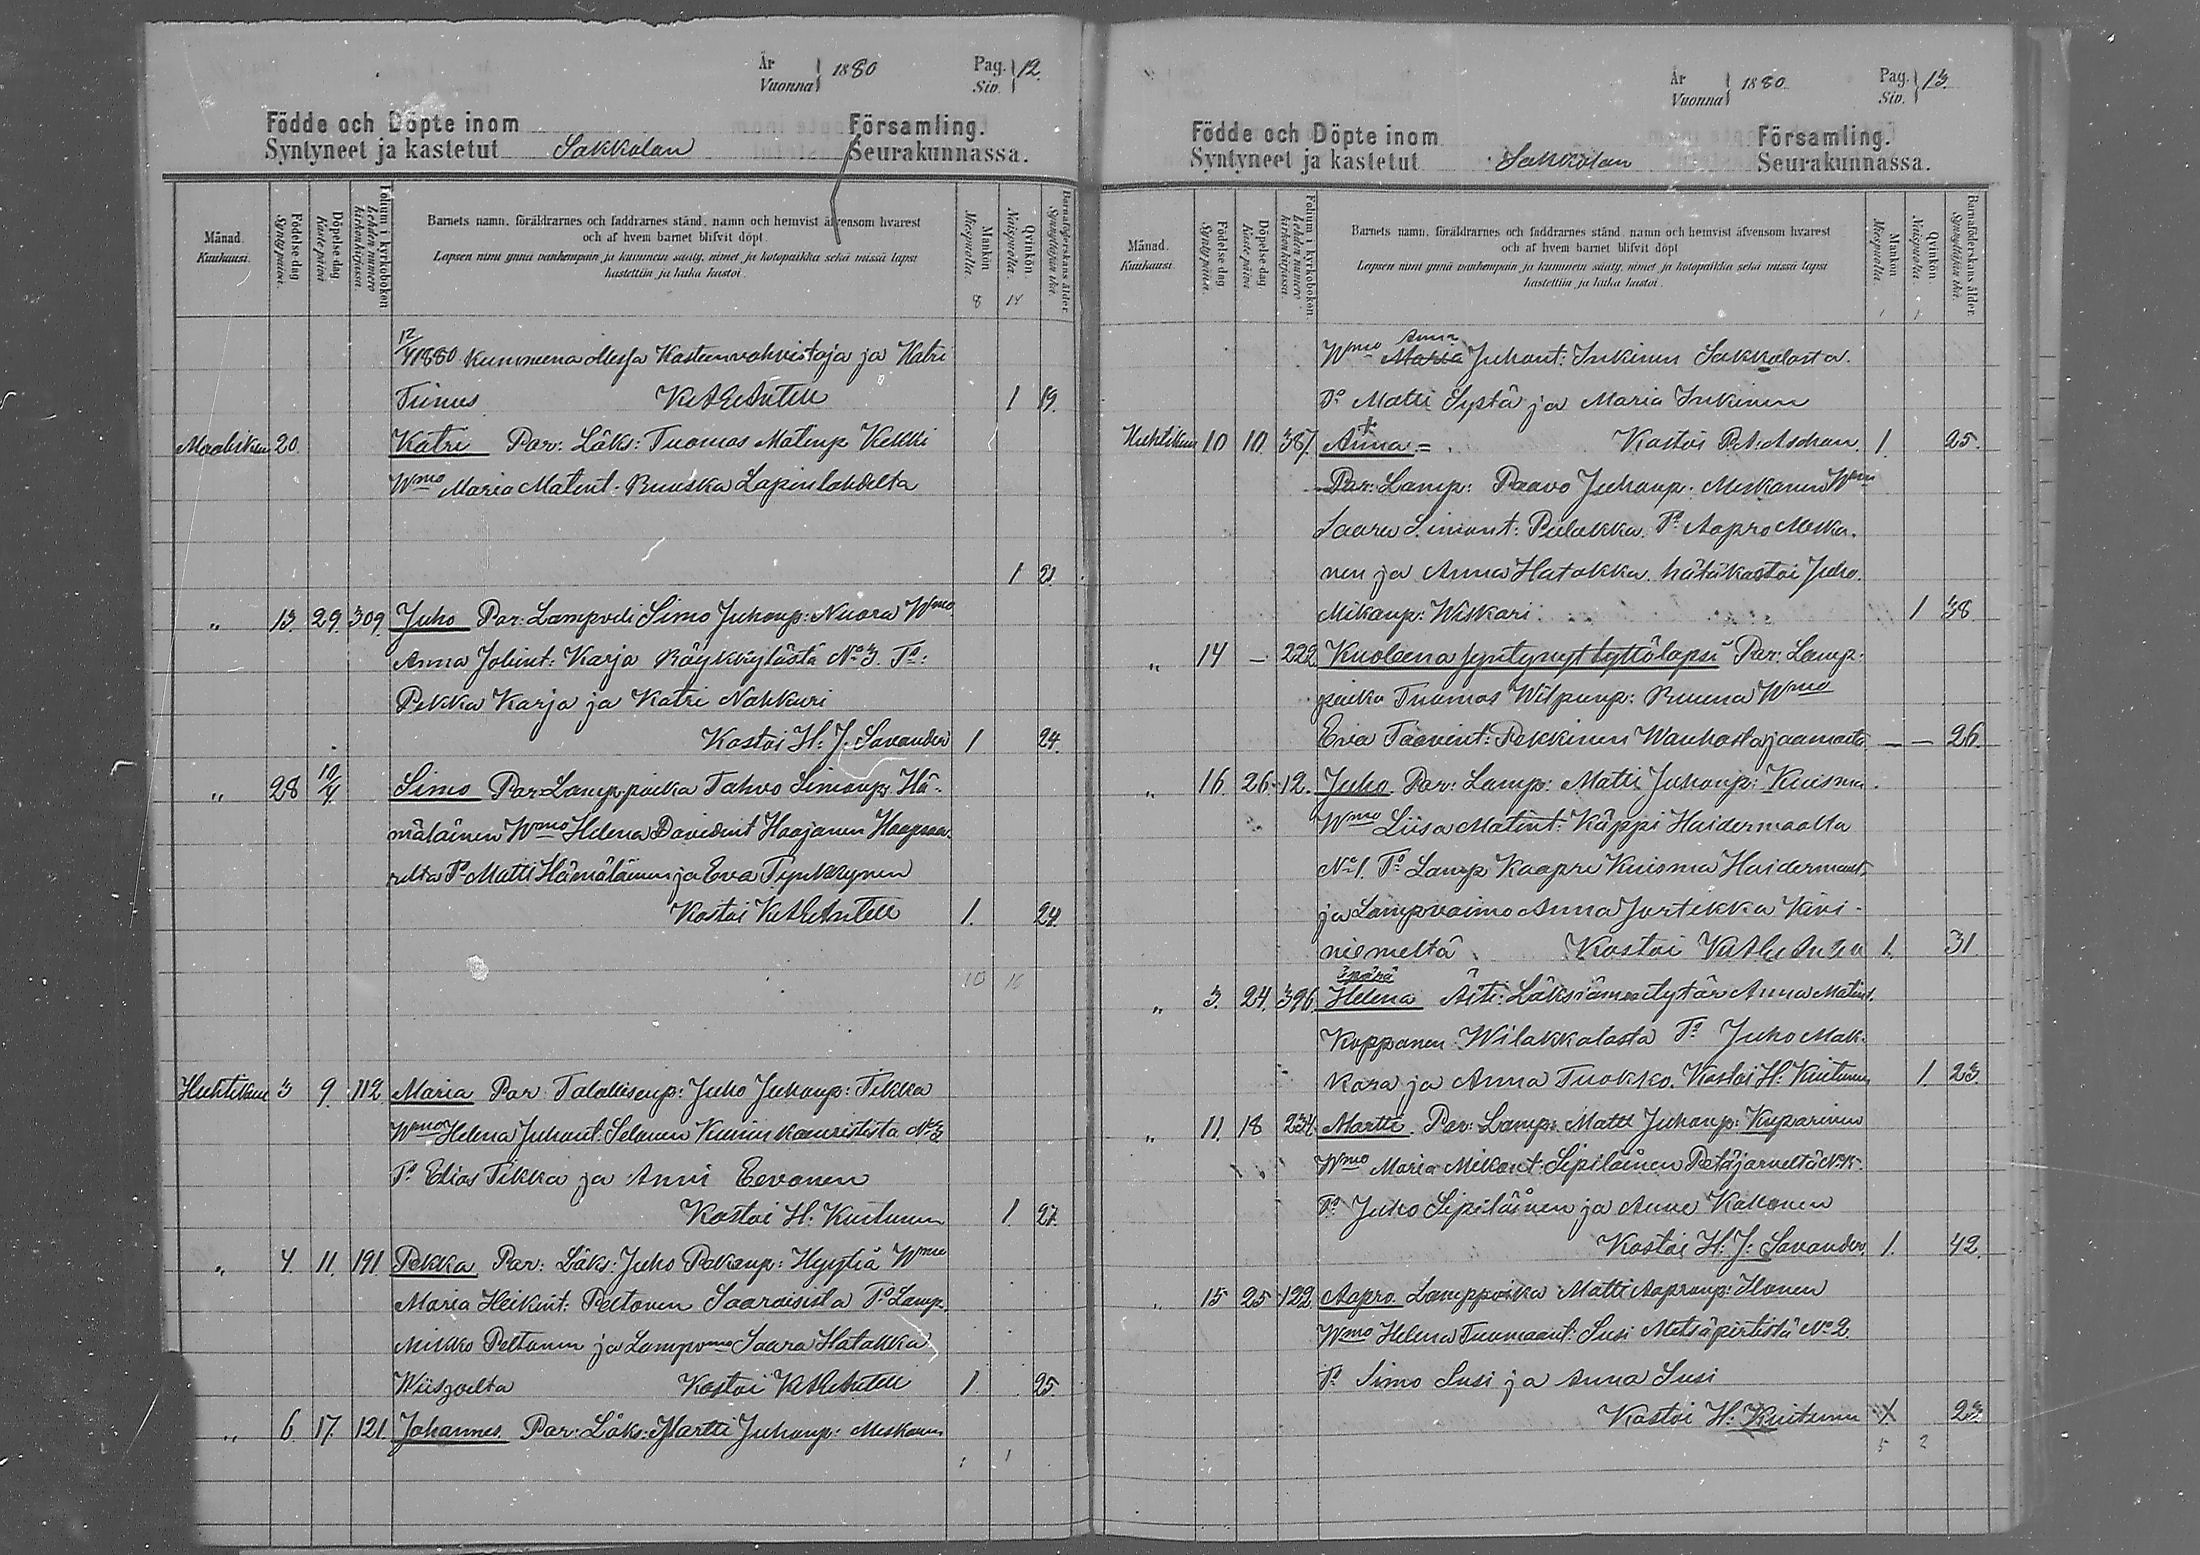 År
Vuonna 1880
Pag.
Siv. 12.
Födde och Döpte inom Församling.
Syntyneet ja kastetut Sakkolan Seurakunnassa.
Månad. Kuukausi.
Födelse-dag Syntypäivä.
Döpelse-dag. Kastepäivä.
Folium i kyrkoboken Lehden numero kirkonkirjassa
Barnets namn, föräldrarnes och faddrarnes stånd, namn och hemvist äfvensom hvarest
och af hvem barnet blifvit döpt.
Lapsen nimi ynnä vanhempain ja kummein sääty, nimet ja kotopaikka sekä missä lapsi
kastettiin ja kuka kastoi.
Mankön Miespuolia. 8
Qvinkön. Naispuolia. 14
Barnaföderskans ålder.
12/4 1880 kummeina ja Katri
1 19.
Maaliskuu 20 Katri Par: Läks: Tuomas Matinp Kekki
Wmo Maria Matint: Ruuska Lapinlahdelta
1 21.
" 13. 29. 309. Juho Par: Simo Juhonp: Nuora Wmo
Anna Karja Röykkylästä No 3. To:
Pekka Karja ja Katri Nahkuri
Kastoi H: J: Savander 1 24.
" 28 10/4 Simo Par: Lamp: poika Tahvo Simonp: Hä-
mäläinen Wmo Helena Davidint Haajanen Haapsaa-
relta To Matti Hämäläinen ja Eva Tynkkynen
Kastoi 1. 24.
10 16
Huhtikuu 3 9. 112 Maria Par: Talollisenp: Juho Juhonp: Tikka
Wmo Helena Juhont: Selonen No 3
To Elias Tikka ja Anni Eevonen
Kastoi H: Kuitunen 1. 27.
" 4. 11. 191 Pekka Par: Läks: Juho Pekanp: Hyytiä Wmo
Maria Heikint: Peltonen Saaroisista To Lamp
Mikko Peltonen ja Lampvmo Saara Hatakka
Kastoi 1 25
" 6 17. 121 Johannes Par: Läks: Martti Juhonp: Meskanen
1
År
Vuonna 1880
Pag.
Siv. 13.
Födde och Döpte inom Församling.
Syntyneet ja kastetut Sakkolan Seurakunnassa.
Månad. Kuukausi.
Födelse-dag Syntypäivä.
Döpelse-dag Kastepäivä
Folium i kyrkoboken Lehden numero kirkonkirjassa
Barnets namn, föräldrarnes och faddrarnes stånd, namn och hemvist äfvensom hvarest
och af hvem barnet blifvit döpt
Lapsen nimi ynnä vanhempain ja kummein sääty, nimet ja kotopaikka sekä missä lapsi
kastettiin ja kuka kastoi.
Mankön Miespuolia.
Qvinkön. Naispuolia.
Barnaföderskans ålder.
Anna
Wmo Maria Juhont: Inkinen Sakkolasta.
To Matti Systä ja Maria Inkinen
Huhtikuu 10 10. 387. Anna = Kastoi 1. 25.
Par: Lamp: Paavo Juhonp: Meskanen Wmo
Saara Simont: Pulakka. To Aapro Meska-
nen ja Anna Hatakka. hätäkastoi Juho
Mikonp: Wiskari 1 38
" 14 - 222 Kuolleena syntynyt tyttölapsi Par: Lamp:
poika Tuomas Wilpunp: Ruuna Wmo
Eva Taavint: Pekkinen - - 26.
" 16. 26. 12. Juho Par: Lamp: Matti Juhonp: Kuisma
Wmo Liisa Matint: Käppi Haidermaalta
No 1. To Lamp Kaapre Kuisma Haidermaalt.
ja Lampvaimo Anna Jortikka Kivi-
niemeltä. Kastoi 1. 31.
äpärä
" 3. 24. 396. Helena Äiti: Anna Matint.
Kopponen Wilakkalasta To Juho Mak-
kara ja Anna Tuokko. Kastoi H: Kuitunen 1. 23.
" 11. 18 234. Martti. Par: Lamp: Matti Juhonp: Kuparinen
Wmo Maria Mikont: Sipiläinen Petäjärveltä
To Juho Sipiläinen ja Anne Kakonen
Kastoi H: J: Savander. 1. 42.
" 15 25 122. Aapro Lamppoika Matti Aapronp: Ilonen
Wmo Helena Tuomaant: Susi Metsäpirtistä No 2.
To Simo Susi ja Anna Susi
Kastoi H: Kuitunen 1 23.
5 2